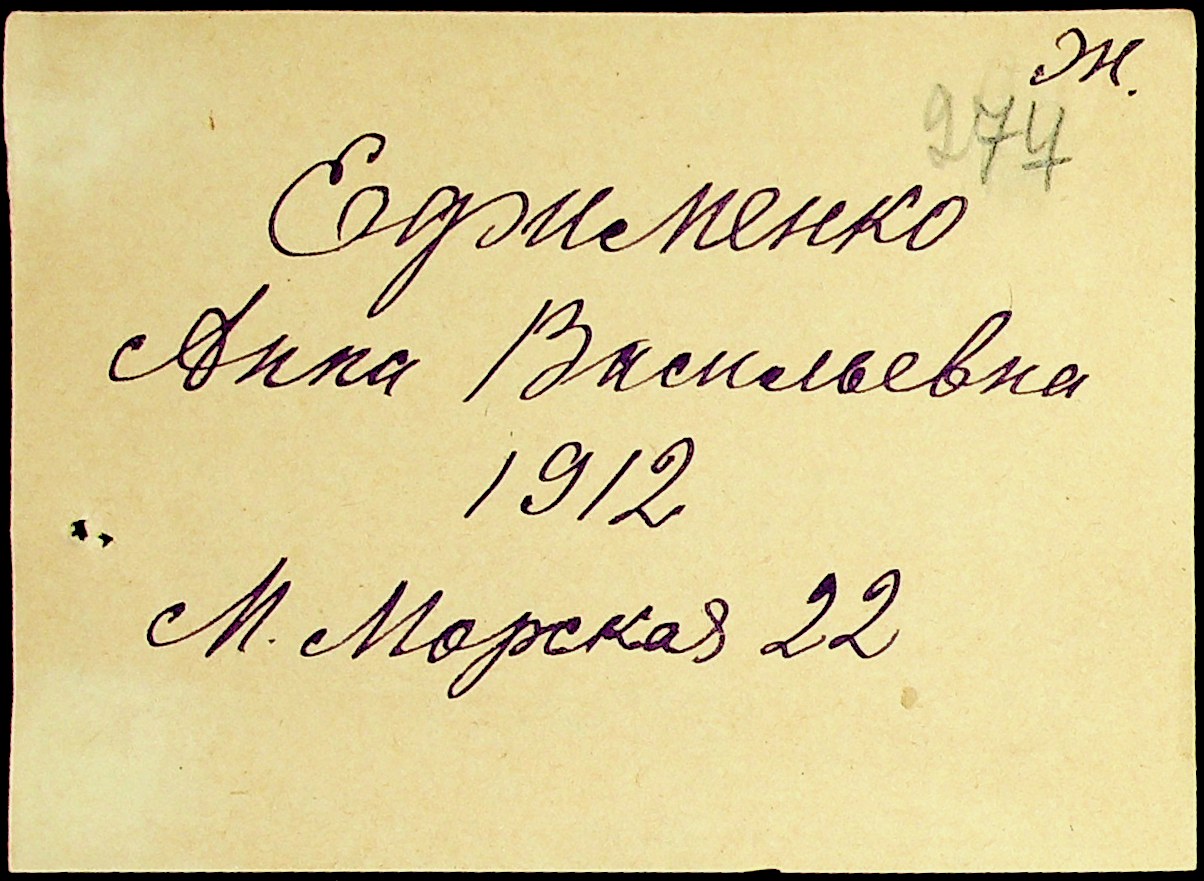 ж.
274
Ефименко
Анна Васильевна
1912
М. Морская 22